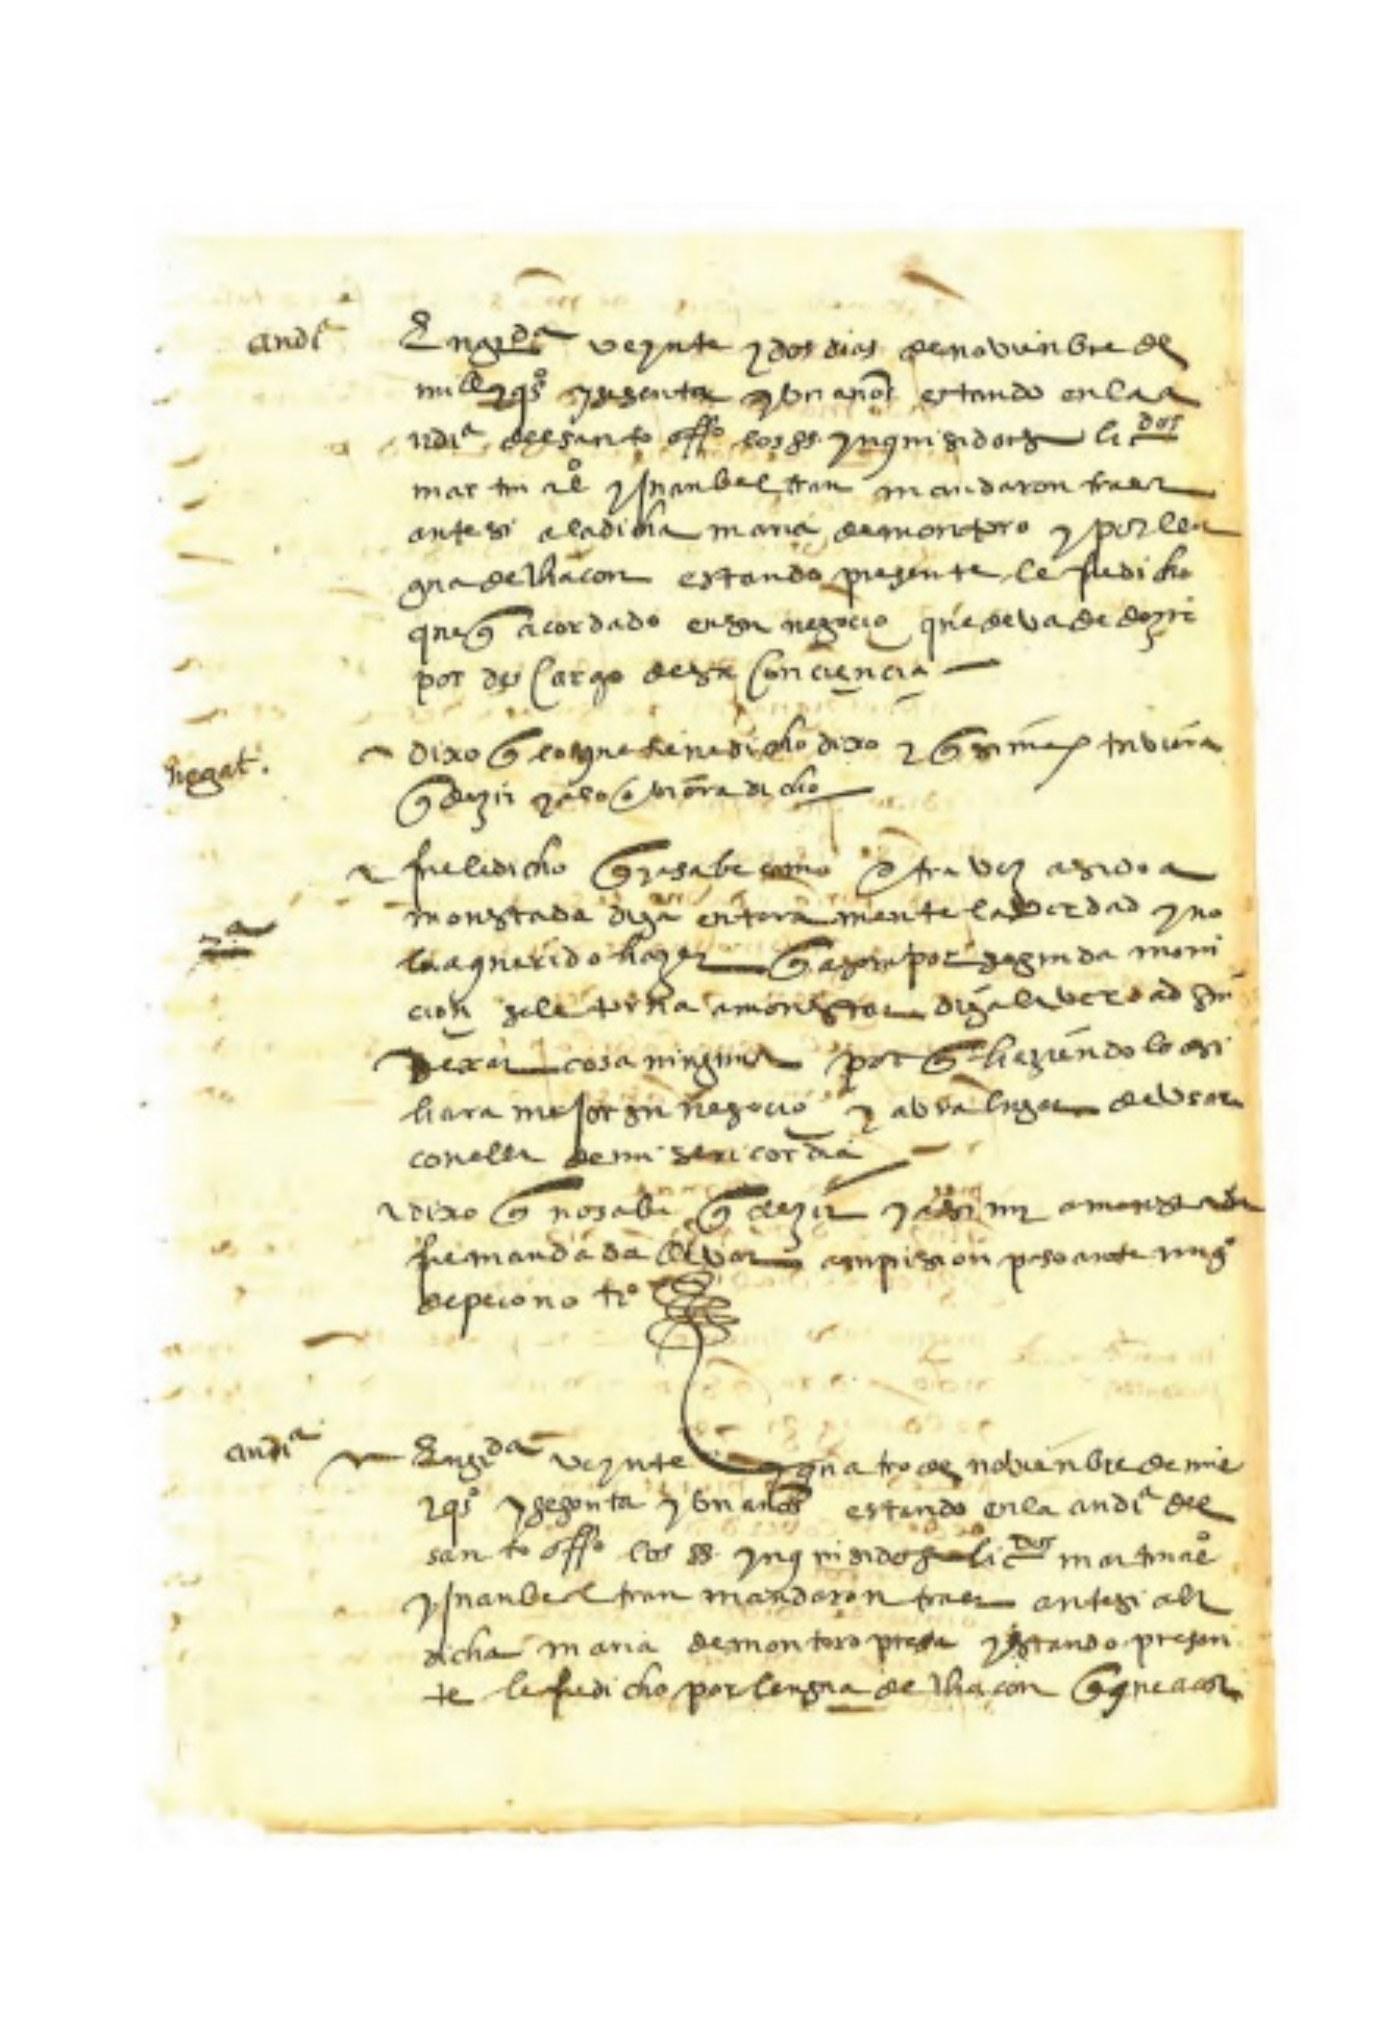 audiª
En grda veynte y dos dias de novienbre de
mill y qºs y sesenta y un años estando en la a
udiª del santo offº los ss. ynquisidores licdos
martin alº y juan beltran mandaron traer
ante si a la dicha maria de montoro y por len
gua de chacon estando presente le fue dicho
que q̃ acordado en su negocio que deva de dezir
por descargo de su conciencia
negat.
dixo q̃ lo que tiene dicho dixo y q̃ si mas tuviera
q̃ dezir ya lo oviera dicho
fuele dicho q̃ ya sabe como otra vez a sido a
monestada diga enteramente la verdad y no
2ª
lo a querido hazer q̃ agora por segunda moni
cion se le torna amonestar diga la verdad sin
dexar cosa ninguna por q̃ haziendolo asi
hara mejor su negocio y avra lugar de usar
con ella de misericordia
dixo q̃ no sabe q̃ dezir y asi amonestada
fue mandada llevar a su prision paso ante mi
tº
audiª
En grda veynte y quatro de novienbre de mil
y qºs y sesenta y un años estando en la audiª del
santo offº los ss. ynquisidores licdos martin alº
y juan beltran mandaron traer ante si a la
dicha maria de montoro presa y estando presen
te le fue dicho por lengua de chacon q̃ que acor